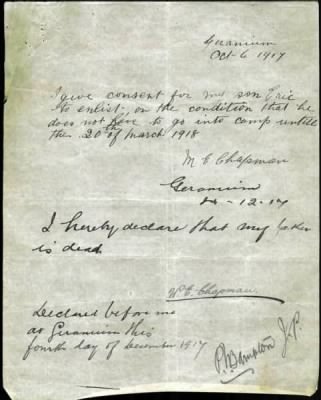 Geranium
Oct 6 1917
I give consent for my son Eric
to enlist on the condition that he
does not have to go into camp untill
the 20th of March 1918
M E Chapman
Geranium
4-12-17
I hereby declare that my father
is dead.
W. E. Chapman.
Declared before me
at Geranium this
fourth day of December 1917
P Bampton J.P.